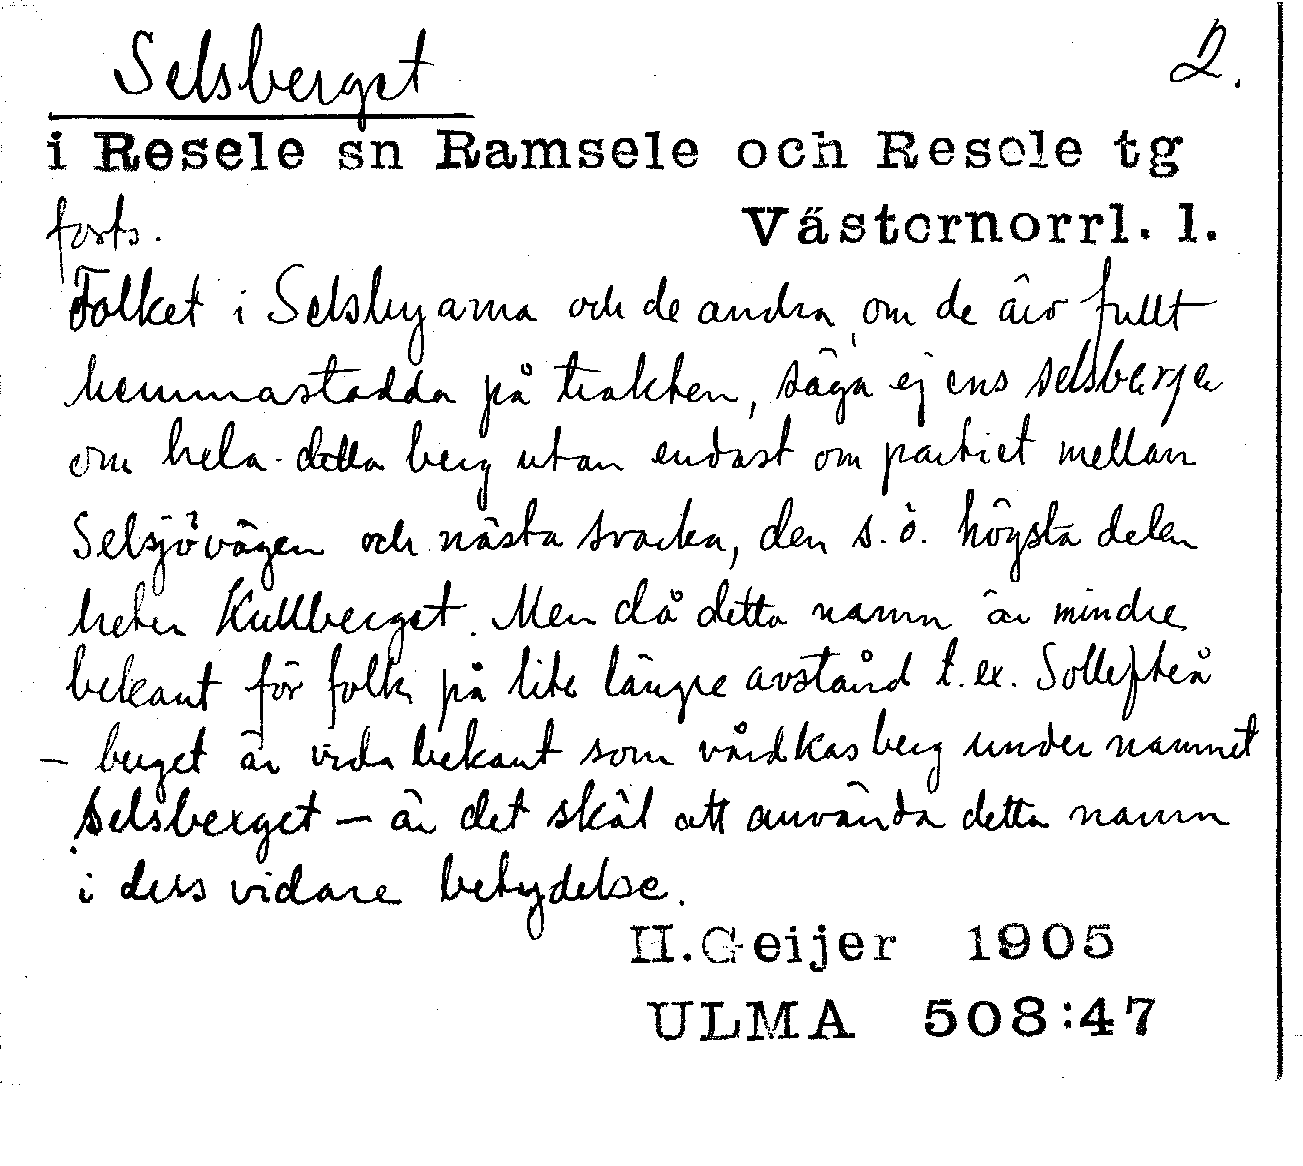 Selsberget 2.
i Resele sn Ramsele och Resele tg
forts. Västernorrl. l.
Folket i Selsbyarna och de andra, om de äro fullt
hemmastadda på trakten, säga ej ens selsberje
om hela detta berg utan endast om partiet mellan
Selsjövägen och nästa svacka, den s.ö. högsta delen
heter Kullberget. Men då detta namn är mindre
bekant för folk på lite längre avstånd t.ex. Sollefteå
– berget är vida bekant som vårdkasberg under namnet
Selsberget – är det skäl att använda detta namn
i dess vidare betydelse.
H.Geijer 1905
ULMA 508:47